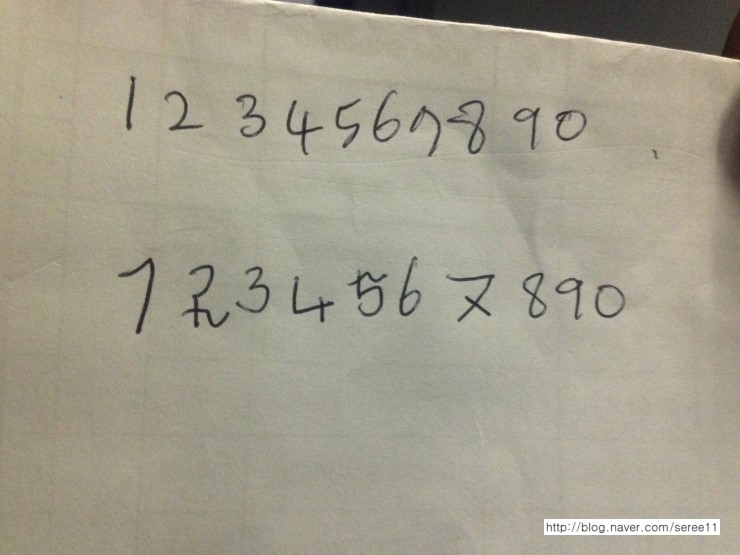 1 2 3 4 5 6 7 8 9 0
1 2 3 4 5 6 7 8 9 0
http://blog.naver.com/seree11